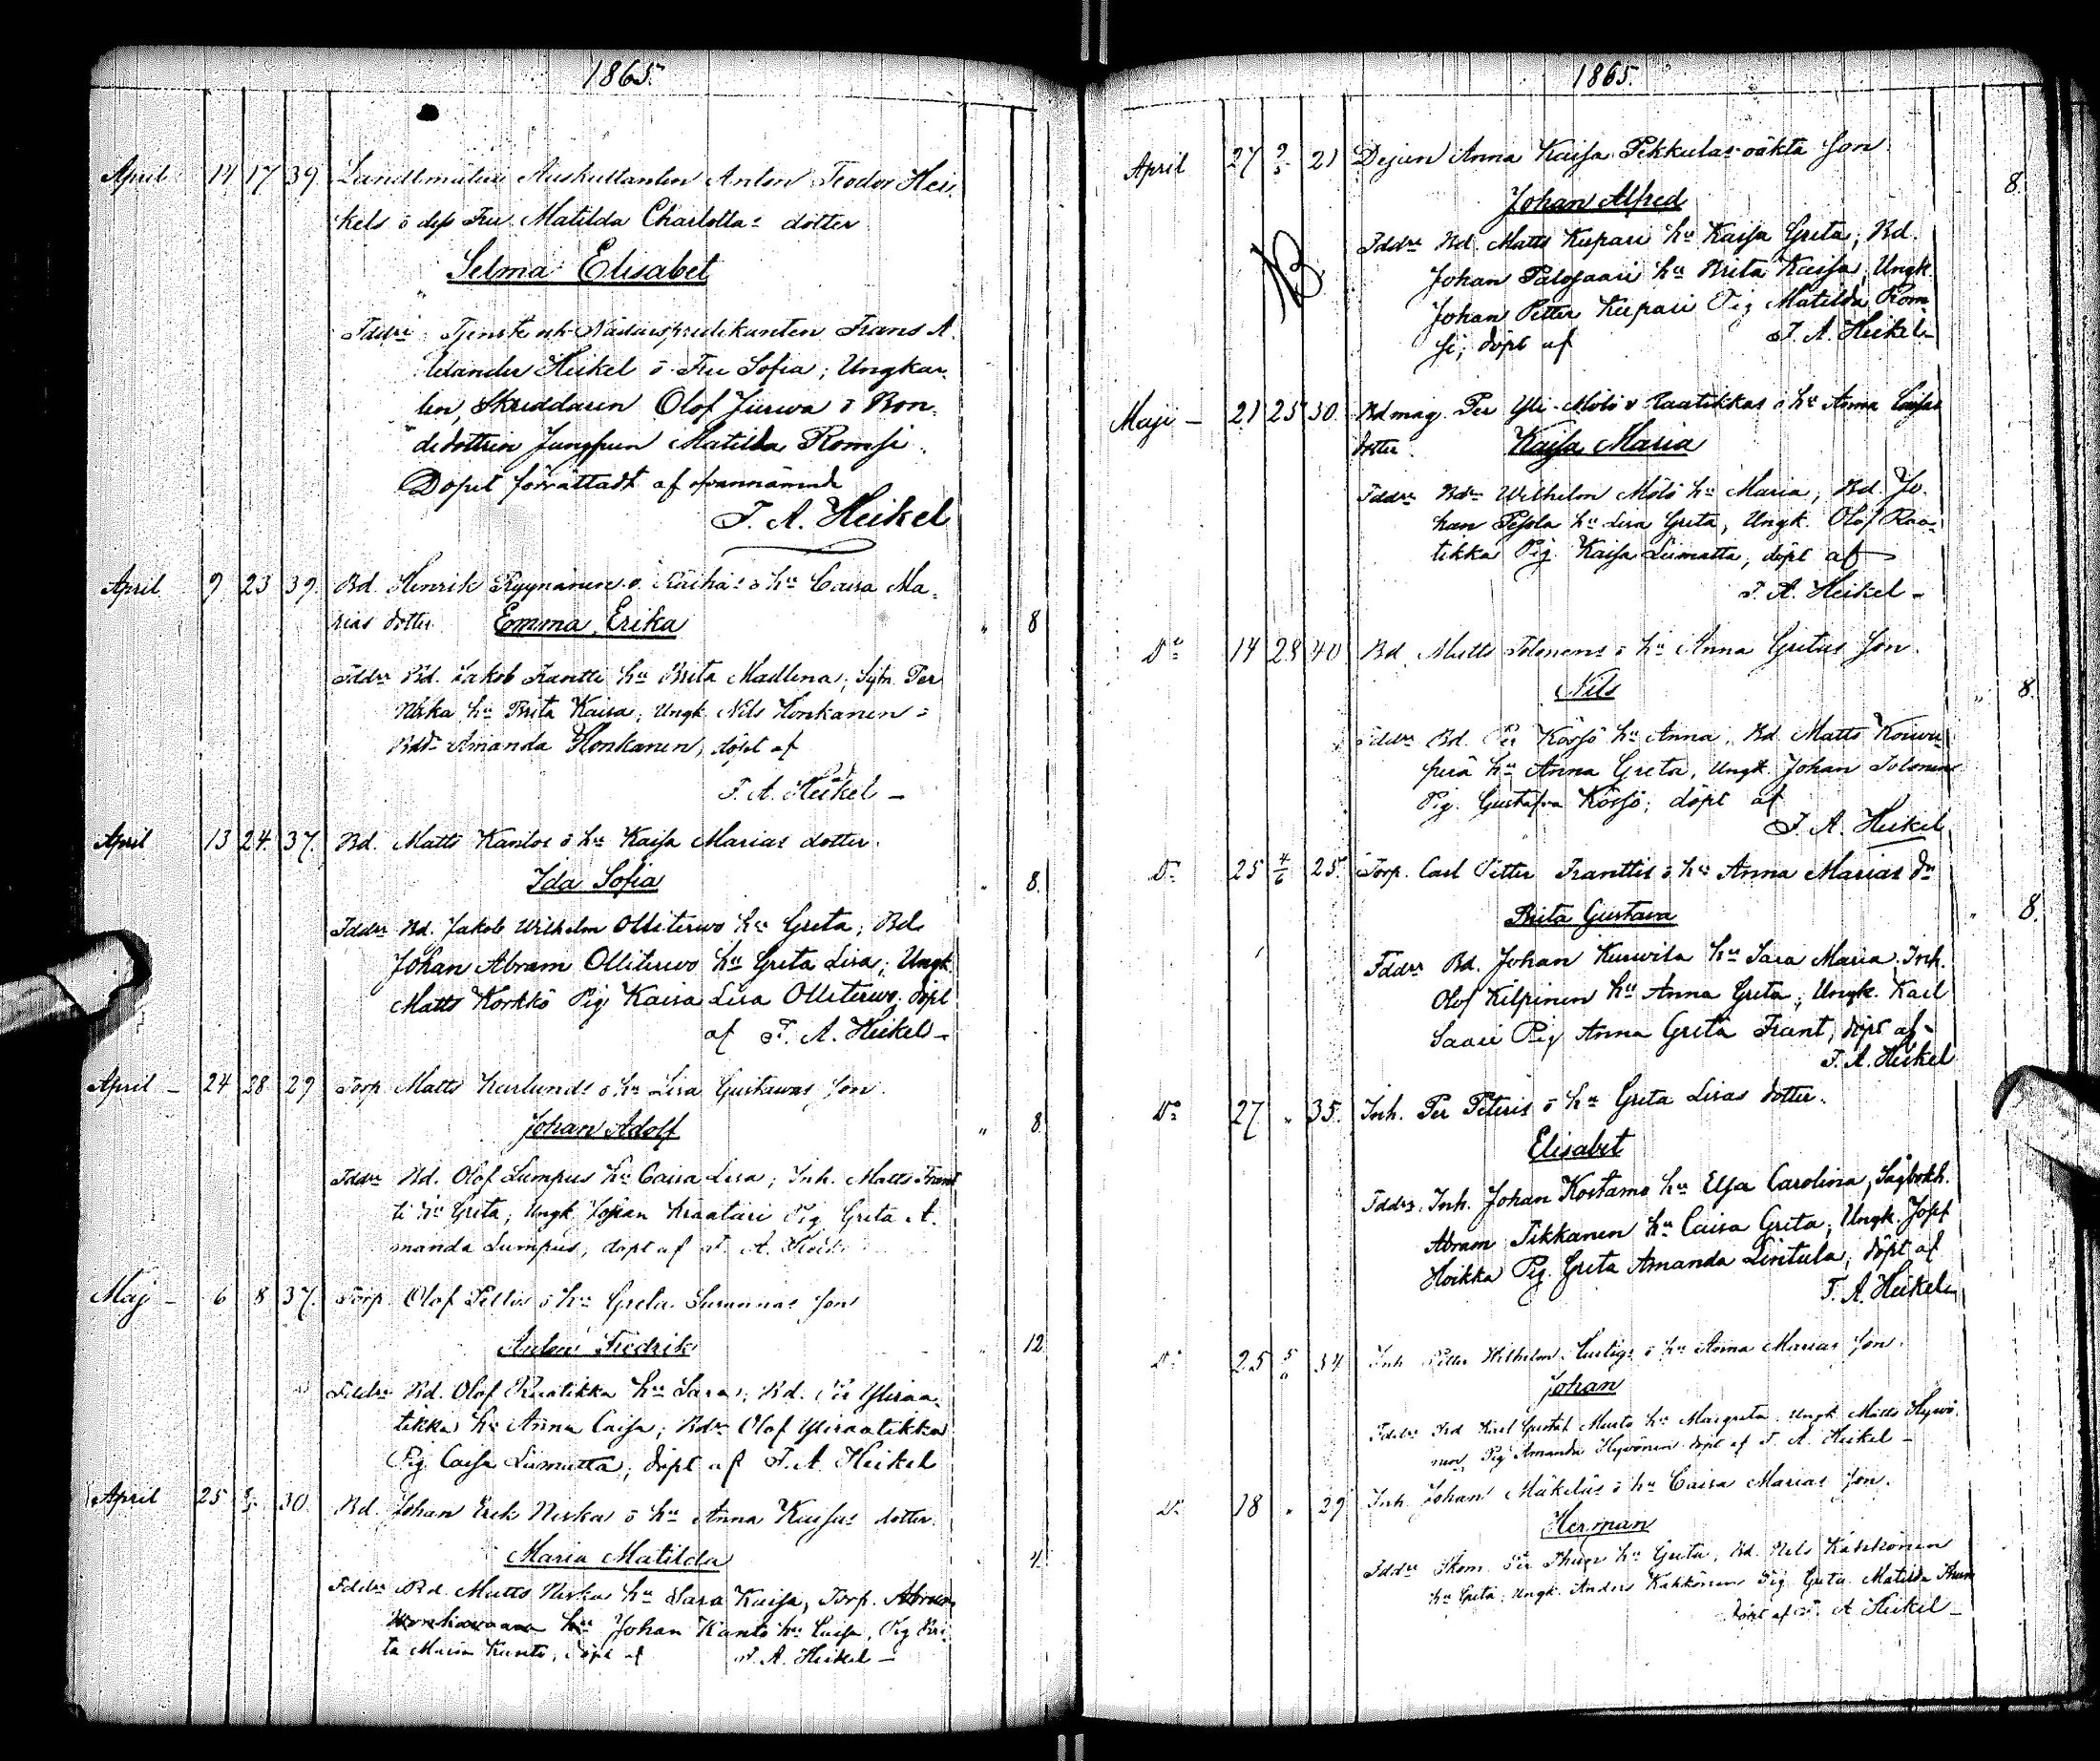 1865.
April 14 17 39 Landtmäteri Auskultanten Anton Teodor Hei-
kels o dess Fru Matilda Charlottas dotter
Selma Elisabet
Fddra Tjenst. och Nådårspredikanten Frans A.
lexander Heikel o Fru Sofia; Ungkar-
len, Skräddaren Olof Jurwa o Bon-
dedottren Jungfrun Matilda Romsi.
Dopet förrättadt af ofvannämnde
F. A. Heikel
April 9 23 39 Bd. Henrik Ryynänen o hu Caisa Ma-
rias dotter Emma Erika 8
Fddra Bd. Jakob Frantti hu Brita Madlena; Per
Niska hu Brita Kaisa; Ungk. Nils Honkanen o
Bdr Amanda Honkanen, döpt af
F. A. Heikel –
April 13 24 37. Bd. Matts Kantos o hu Kaisa Marias dotter.
Ida Sofia 8.
Fddra Bd. Jakob Wilhelm Olliterwo hu Greta; Bd.
Johan Abram Olliterwo hu Greta Lisa; Ungk.
Matts Korkko Pig. Kaisa Lisa Olliterwo. döpt
af F. A. Heikel –
April – 24 28 29 Torp. Matts o hu Lisa Gustawas son.
Johan Adolf 8
Fddra Bd. Olof Lumpus hu Caisa Lisa; Inh. Matts Frant
ti hu Greta; Ungk. Johan Pig. Greta A.
manda Lumpus, döpt af F. A.
Maj – 6 8 37. Torp. Olof o hu Greta Susannas son
Fredrik 12
Fddra Bd. Olof Raatikka hu Sara; Bd. Per Yliraa-
tikka hu Anna Caisa; Bdr Olof Yliraatikka
Pig. Caisa Liimatta; döpt af F. A. Heikel
April 25 30. Bd. Johan Erik Niskas o hu Anna Kaisas dotter.
Maria Matilda 4
Fddra Bd. Matts Niska hu Sara Kaisa, Torp.
hu Johan Kanto hu Caisa, Pig. Bri-
ta Maria Kanto, döpt af F. A. Heikel –
1865.
April 27 21 Dejan Anna Kaisa Pekkulas oäkta son
Johan Alfred 8.
Fddra Bd. Matts Kupari hu Kaisa Greta; Bd.
Johan Palosaari hu Brita Kaisa; Ungk.
Johan Petter Kupari Pig Matilda Rom
si; döpt af F. A. Heikel –
Maji – 21 25 30. Bdmåg. Per Yli-Mölö v Raatikkas o hu Anna Caisas
dotter Kaisa Maria
Fddra Bdr Wilhelm Mölö hu Maria; Bd. Jo-
han Pessola hu Lisa Greta, Ungk. Olof Raa-
tikka Pig. Kaisa Liimatta, döpt af
F. A. Heikel –
Do 14 28 40 Bd. Matts Tolonens o hu Anna Gretas son.
Nils 8.
Fddra Bd. Per Körsö hu Anna, Bd. Matts Koiwu-
perä hu Anna Greta, Ungk. Johan Tolonen
Pig. Gustafwa Körsö; döpt af
F. A. Heikel
Do 25 4/6 25. Torp. Carl Petter Franttis o hu Anna Marias dr
Brita Gustava 8.
Fddra Bd. Johan hu Sara Maria, Inh.
Olof Kilpinen hu Anna Greta; Ungk. Karl
Saari Pig Anna Greta Frant, döpt af
F. A. Heikel
Do 27 " 35. Inh. Per Peteris o hu Greta Lisas dotter.
Elisabet
Fddra. Inh. Johan Kostamo hu Elsa Carolina, Sågbokh.
Abram Tikkanen hu Caisa Greta, Ungk. Josef
Hoikka Pig. Greta Amanda Livitula; döpt af
F. A. Heikel
Do 25 34 Inh. Petter Wilhelm o hu Anna Marias son.
Johan
Fddra Bd Karl Gustaf hu Margreta. Ungk. Matts Hyvö-
nen, Pig Amanda Hyvönen döpt af F. A. Heikel –
Do 18 " 29 Inh. Johan Mäkeläs o hu Caisa Marias son.
Herman
Fddra Per hu Greta, Bd. Nils
hu Greta; Ungk. Anders Pig. Greta Matilda
döpt af F. A Heikel –